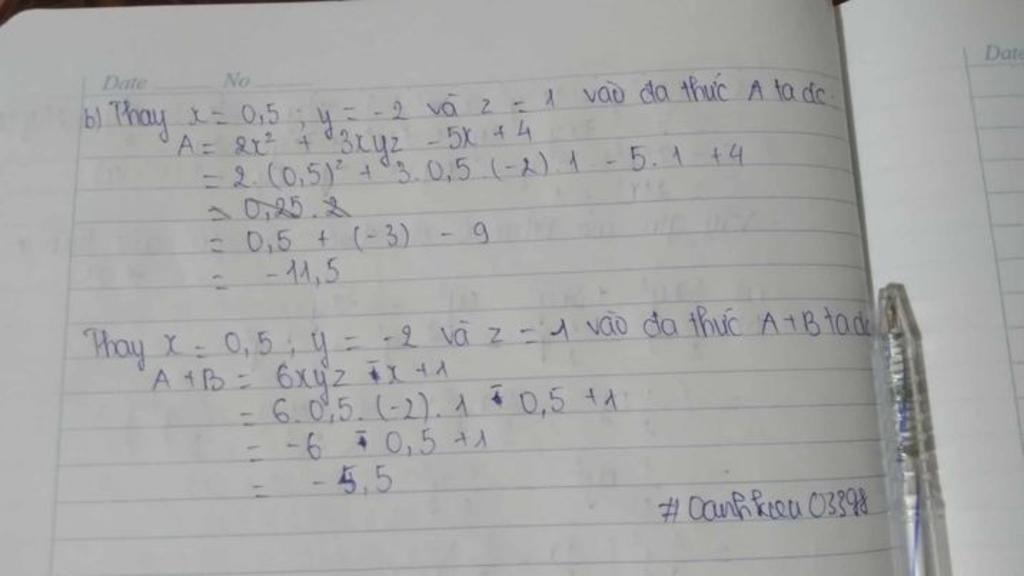 Date No
Date
b) Thay x = 0,5 ; y = -2 và z = 1 vào đa thức A ta dc
A = 2x² + 3xyz - 5x + 4
= 2. (0,5)² + 3. 0,5. (-2). 1 - 5. 1 + 4
= 0,25. 2
= 0,5 + (-3) - 9
= -11,5
Thay x = 0,5 ; y = -2 và z = 1 vào đa thức A+B ta dc
A + B = 6xyz - x + 1
= 6. 0,5. (-2). 1 - 0,5 + 1
= -6 - 0,5 + 1
= -5,5